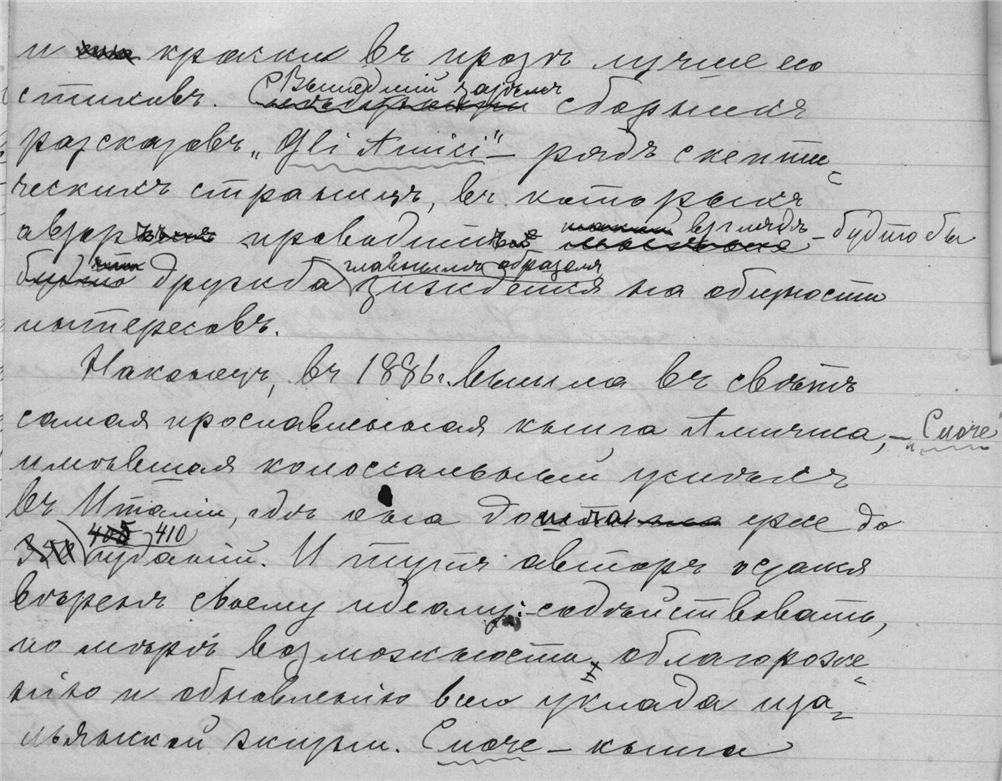 и краски въ прозѣ лучше его
стиховъ. Вышедшій затѣмъ сборникъ
разсказовъ „Gli Amici“ – рядъ скепти-
ческихъ страницъ, въ которыхъ
авторъ проводитъ взглядъ – будто бы
дружба главнымъ образомъ зиждется на общности
интересовъ.
Наконецъ, въ 1886 г. вышла въ свѣтъ
самая прославленная книга Амичиса, – „Cuore“
имѣвшая колоссальный успѣхъ
въ Италіи, гдѣ она дошла уже до
410 изданій. И тутъ авторъ остался
вѣренъ своему идеалу: содѣйствовать,
по мѣрѣ возможности, облагороже-
нію и обновленію всего уклада ита-
льянской жизни. Cuore – книга